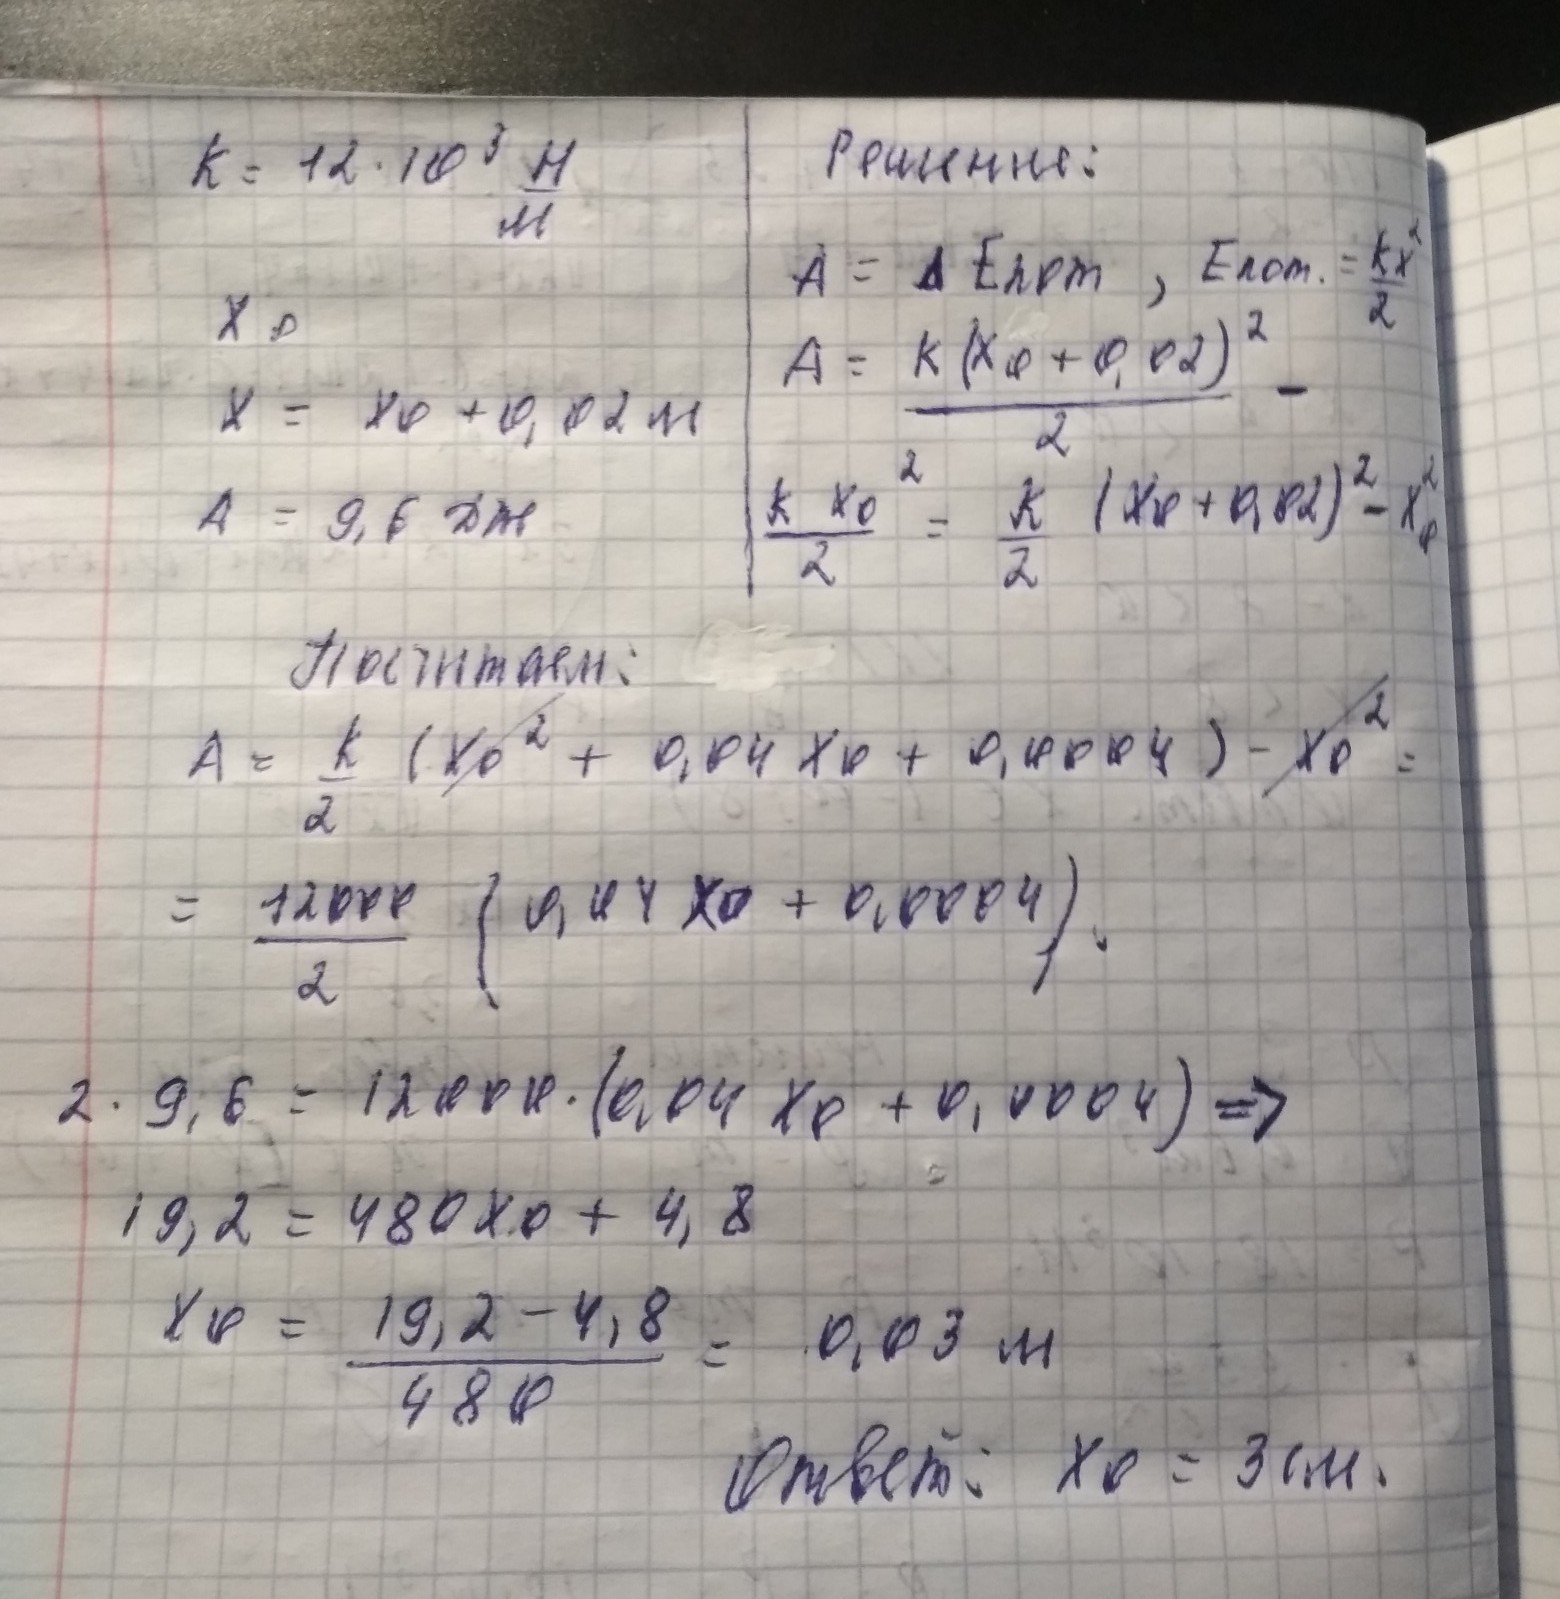 K = 12·10³ Н/м
x₀
x = x₀ + 0,02 м
A = 9,6 Дж
Решение:
A = Δ Eпот , Eпот. = kx²/2
A = k(x₀ + 0,02)²/2 −
k x₀²/2 = k/2 (x₀ + 0,02)² − x₀²
Посчитаем:
A = k/2 (x₀² + 0,04 x₀ + 0,0004) − x₀² =
= 12000/2 (0,04 x₀ + 0,0004).
2 · 9,6 = 12000·(0,04 x₀ + 0,0004) =>
19,2 = 480x₀ + 4,8
x₀ = 19,2 − 4,8/480 = 0,03 м
Ответ: x₀ = 3 см.